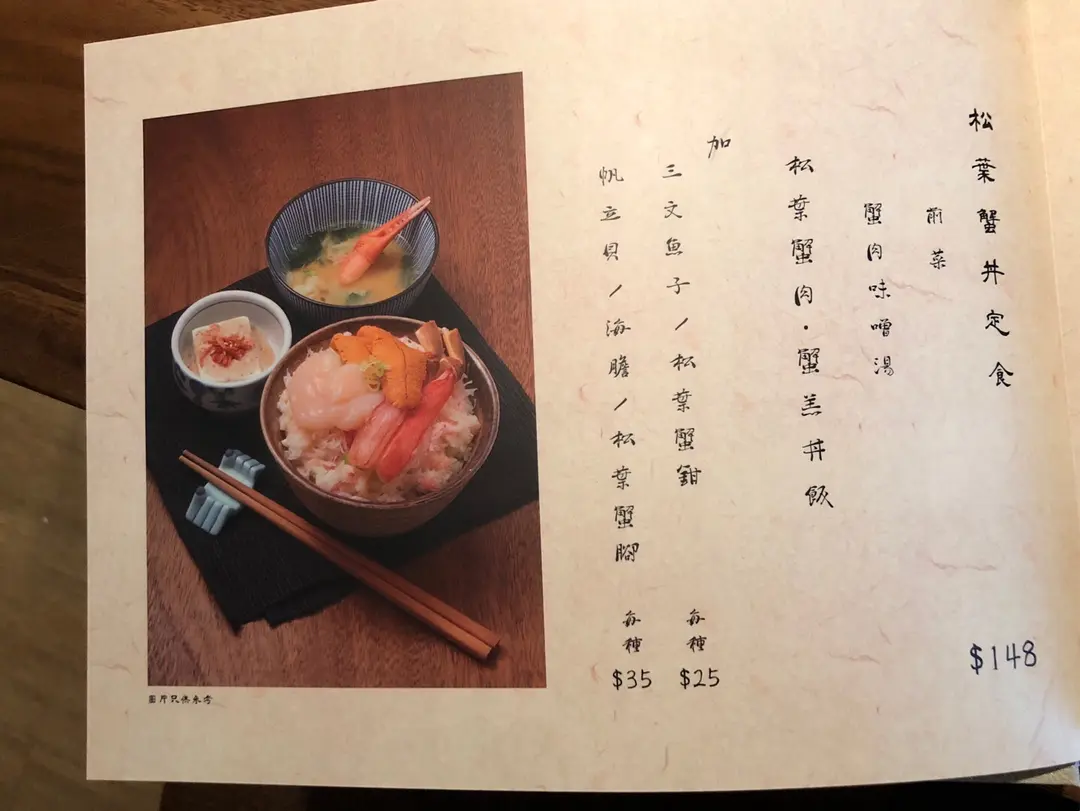 松葉蟹丼定食
$148
前菜
蟹肉味噌湯
松葉蟹肉・蟹羔丼飯
加
三文魚子/松葉蟹鉗
每種
$25
帆立貝/海膽/松葉蟹腳
每種
$35
圖片只供參考